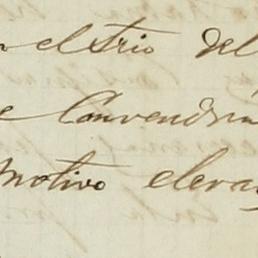 el trio del
Convendria
Motivo eleva